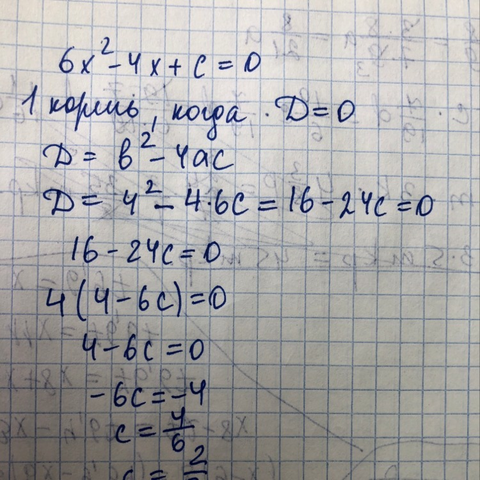 6x² - 4x + c = 0
1 корень, когда D = 0
D = b² - 4ac
D = 4² - 4·6c = 16 - 24c = 0
16 - 24c = 0
4(4 - 6c) = 0
4 - 6c = 0
-6c = -4
c = 4/6
c = 2/